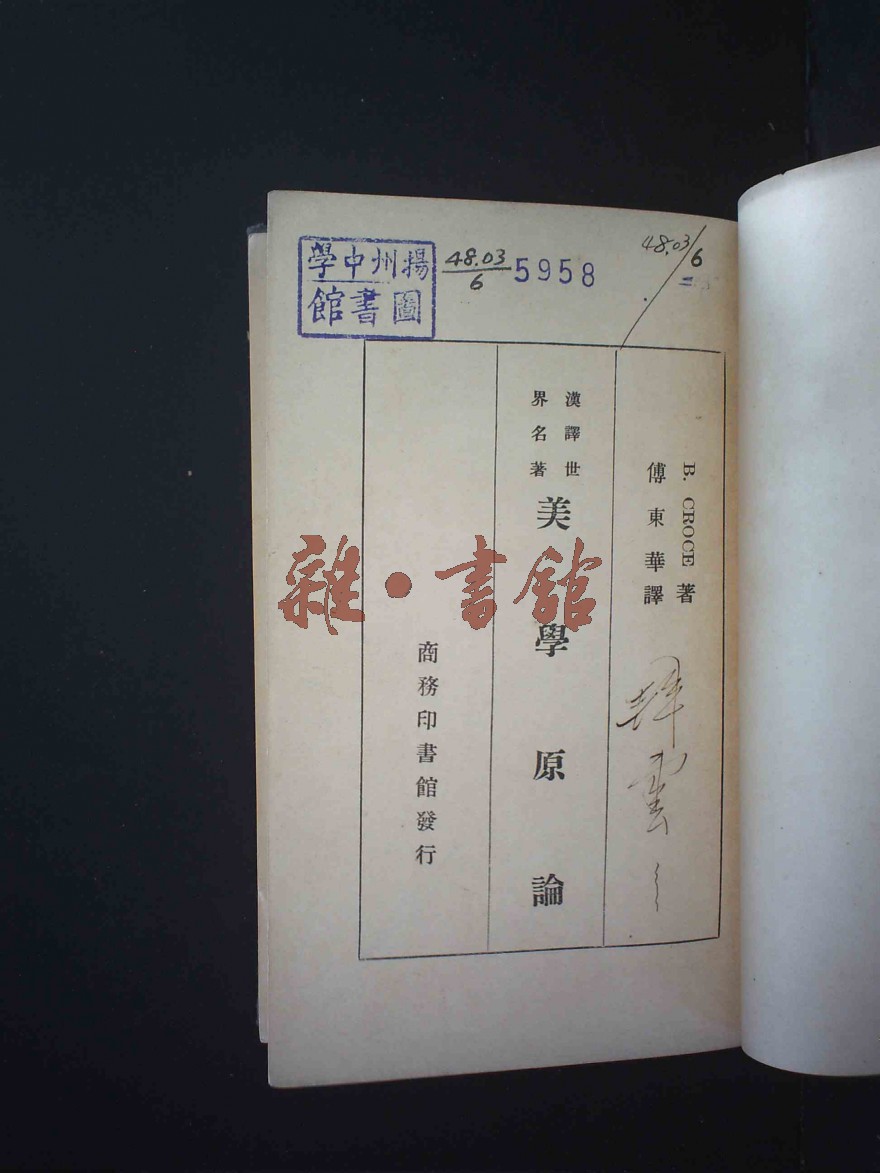 揚州中學
圖書館
48.03
6
5958
48.03/6
B. CROCE 著
傅東華譯
漢譯世
界名著
美學原論
商務印書館發行
雜·書館